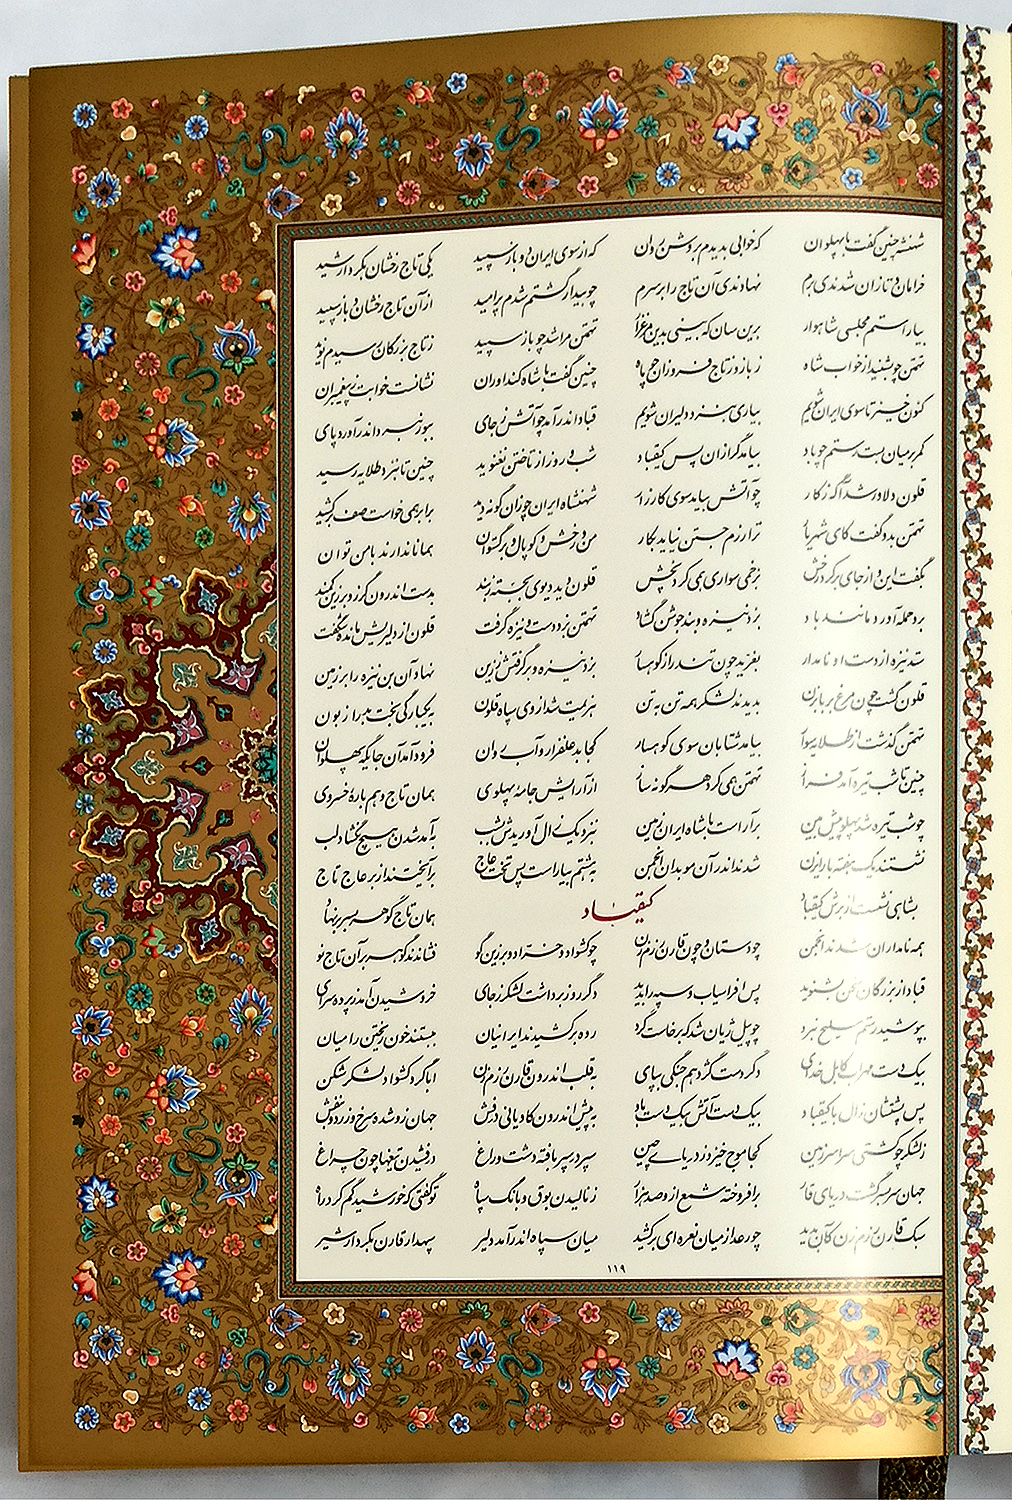 شهنشه چنین گفت با پهلوان که خوابی بدیدم بروشن روان که از سوی ایران دو باز سپید یکی تاج رخشان بکردار شید
خرامان و تازان شدندی برم نهادندی آن تاج را بر سرم چو بیدار گشتم شدم پرامید از آن تاج رخشان و باز سپید
بیاراستم مجلسی شاهوار برین سان که بینی بدین مرغزار تهمتن مرا شد چو باز سپید ز تاج بزرگان رسیدم نوید
تهمتن چو بشنید از خواب شاه ز باز و ز تاج فروزان چو ماه چنین گفت با شاه کنداوران نشانست خوابت ز پیغمبران
کنون خیز تا سوی ایران شویم بیاری به نزد دلیران شویم قباد اندر آمد چو آتش ز جای ببور نبرد اندر آورد پای
کمر بر میان بست رستم چو باد بیامد گرازان پس کیقباد شب و روز از تاختن نغنوید چنین تا بنزد طلایه رسید
قلون دلاور شد آگه ز کار چو آتش بیامد سوی کارزار شهنشاه ایران چو زان گونه دید برابر همی خواست صف برکشید
تهمتن بدو گفت کای شهریار ترا رزم جستن نیاید بکار من و رخش و کوپال و برگستوان همانا ندارند با من توان
بگفت این و از جای برکرد رخش بزخمی سواری همی کرد پخش قلون دید دیوی بجسته ز بند بدست اندرون گرز و برزین کمند
برو حمله آورد مانند باد بزد نیزه و بند جوشن گشاد تهمتن بزد دست و نیزه گرفت قلون از دلیریش مانده شگفت
ستد نیزه از دست او نامدار بغرید چون تندر از کوهسار بزد نیزه و برگرفتش ز زین نهاد آن بن نیزه را بر زمین
قلون گشت چون مرغ بر بابزن بدیدند لشکر همه تن به تن هزیمت شد از وی سپاه قلون به یکبارگی بخت بد را زبون
تهمتن گذشت از طلایه سوار بیامد شتابان سوی کوهسار کجا بد علفزار و آب روان فرود آمد آن جایگه پهلوان
چنین تا شب تیره آمد فراز تهمتن همی کرد هر گونه ساز از آرایش جامهٔ پهلوی همان تاج و هم بارهٔ خسروی
چو شب تیره شد پهلو پیش بین برآراست با شاه ایران زمین بنزدیک زال آوریدش بشب به آمد شدن هیچ نگشاد لب
نشستند یک هفته با رایزن شدند اندر آن موبدان انجمن به هشتم بیاراست پس تخت عاج برآویختند از بر عاج تاج
کیقباد
بشاهی نشست از برش کیقباد همان تاج گوهر بسر بر نهاد
همه نامداران شدند انجمن چو دستان و چون قارن رزم زن چو کشواد و خراد و برزین گو فشاندند گوهر بر آن تاج نو
قباد از بزرگان سخن بشنوید پس افراسیاب و سپه را بدید دگر روز برداشت لشکر ز جای خروشیدن آمد ز پرده سرای
بپوشید رستم سلیح نبرد چو پیل ژیان شد که برخاست گرد رده برکشیدند ایرانیان ببستند خون ریختن را میان
بیک دست مهراب کابل خدای دگر دست گژدهم جنگی بپای بقلب اندرون قارن رزم زن ابا گرد کشواد لشکر شکن
پس پشتشان زال با کیقباد بیک دست آتش بیک دست باد به پیش اندرون کاویانی درفش جهان زو شده سرخ و زرد و بنفش
ز لشکر چو کشتی سراسر زمین کجا موج خیزد ز دریای چین سپر در سپر بافته دشت و راغ درفشیدن تیغها چون چراغ
جهان سر بسر گشت دریای قار برافروخته شمع ازو صد هزار ز نالیدن بوق و بانگ سپاه تو گفتی که خورشید گم کرد راه
سبک قارن رزم زن کان بدید چو رعد از میان نعره ای برکشید میان سپاه اندر آمد دلیر سپهدار قارن بکردار شیر
۱۱۹